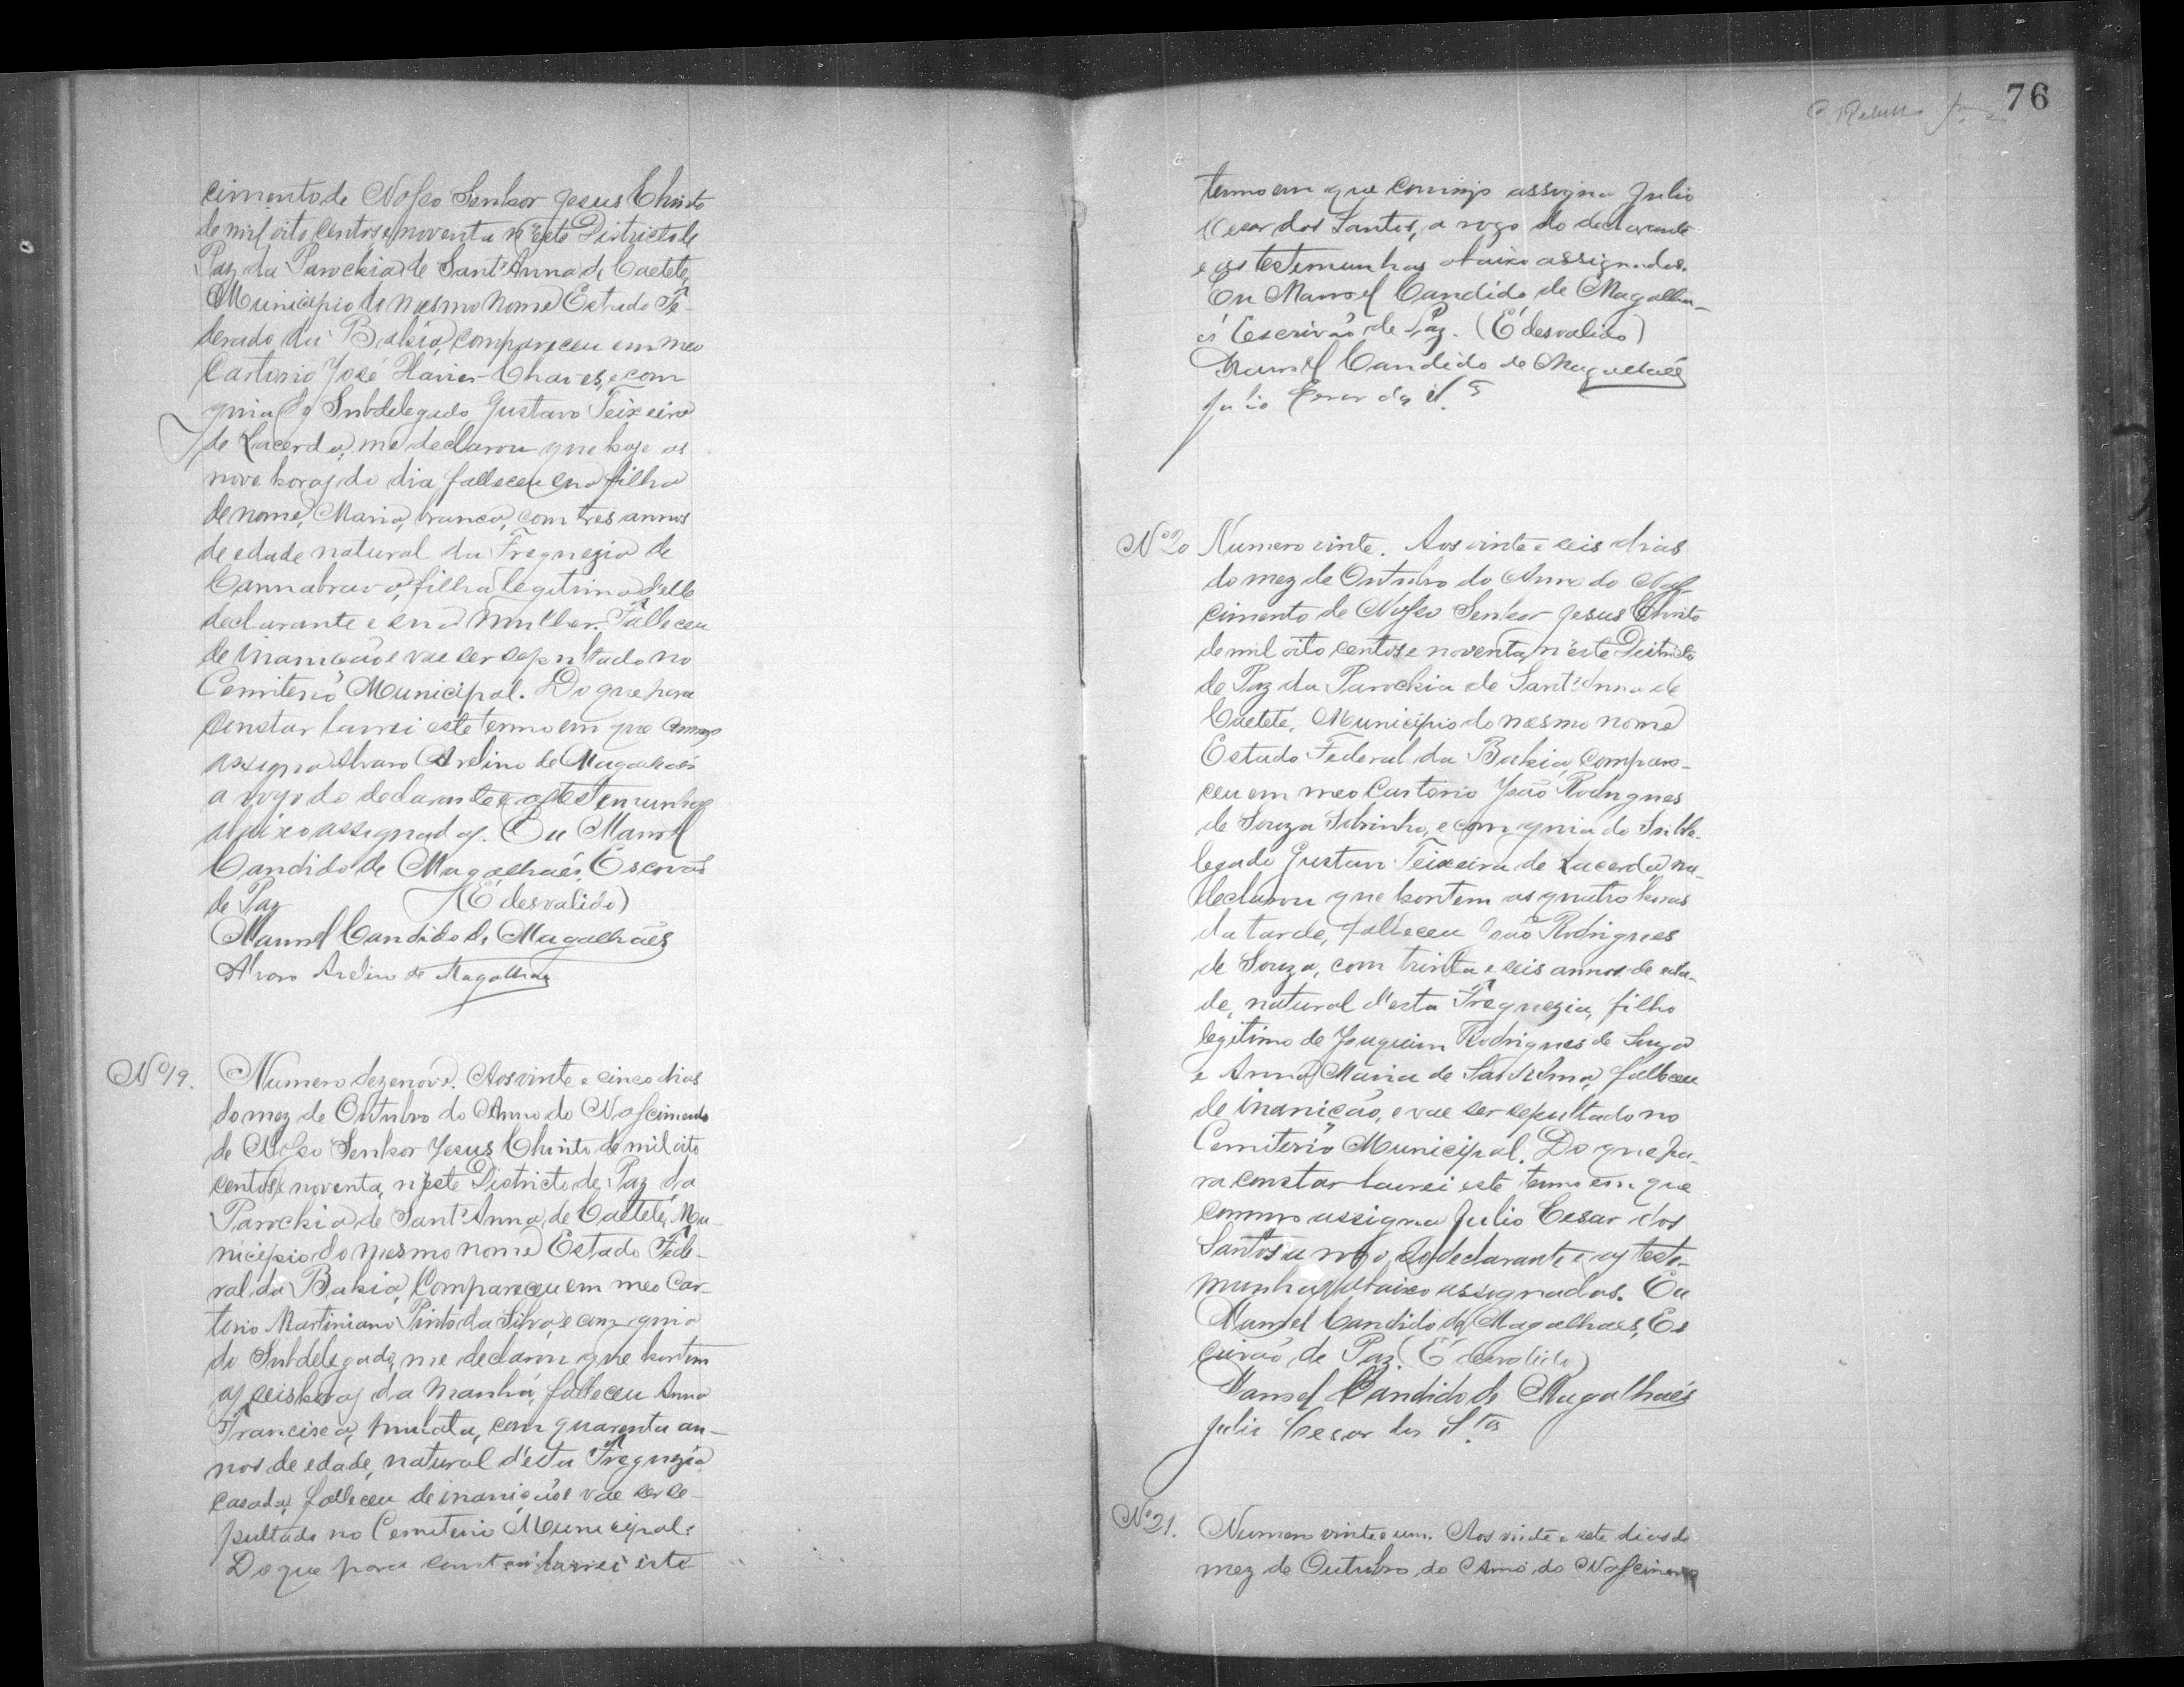 76
cimento de Nosso Senhor Jesus Christo
de mil oito centos e noventa n'este Districto de
Paz da Parochia de Sant'Anna de Caeteté,
Municipio do mesmo nome Estado Fe-
derado da Bahia, compareceu em meo
Cartorio José Xavier Chaves, e com
guia do Subdelegado Gustavo Teixeira
de Lacerda, me declarou que hoje as
nove horas do dia falleceu sua filha
de nome, Maria, branca, com tres annos
de edade natural da Freguezia de
Cannabrava, filha legitima d'elle
declarante e sua mulher. Falleceu
de inanição e vae ser sepultado no
Cemiterio Municipal. Do que para
constar lavrei este termo em que commigo
assigna Alvaro Avelino de Magalhães
a rogo do declarante e as testemunhas
abaixo assignadas. Eu Manoel
Candido de Magalhães, Escrivão
de Paz (É desvalido)
Manoel Candido de Magalhães
Alvaro Avelino de Magalhães
Nº 19. Numero dezenove. Aos vinte e cinco dias
do mez de Outubro do Anno do Nascimento
de Nosso Senhor Jesus Christo de mil oito
centos e noventa, n'este Districto de Paz da
Parochia de Sant'Anna, de Caeteté, Mu-
nicipio do mesmo nome Estado Fede-
ral da Bahia, Compareceu em meo Car-
torio Martiniano Pinto da Silva, e com guia
do Subdelegado, me declarou que hontem
as seis horas da manhã, falleceu Anna
Francisca, mulata, com quarenta an-
nos de edade, natural d'esta Freguezia
casada, falleceu de inanição e vae ser se-
pultada no Cemiterio Municipal.
Do que para constar lavrei este
termo em que commigo assigna Julio
Cesar dos Santos, a rogo do declarante
e as testemunhas abaixo assignadas.
Eu Manoel Candido de Magalhã-
es Escrivão de Paz. (É desvalido)
Manoel Candido de Magalhães
Julio Cesar dos S.
Nº 20 Numero vinte. Aos vinte e seis dias
do mez de Outubro do Anno do Nas-
cimento de Nosso Senhor Jesus Christo
de mil oito centos e noventa, n'este Districto
de Paz da Parochia de Sant'Anna de
Caeteté, Municipio do mesmo nome
Estado Federal da Bahia, compare-
ceu em meo Cartorio João Rodrigues
de Souza Sobrinho, e com guia do Subde-
legado Gustavo Teixeira de Lacerda, me
declarou que hontem as quatro horas
da tarde, falleceu João Rodrigues
de Souza, com trinta e seis annos de eda-
de, natural d'esta Freguezia, filho
legitimo de Joaquim Rodrigues de Souza
e Anna Maria de falleceu
de inanição, e vae ser sepultado no
Cemiterio Municipal. Do que pa-
ra constar lavrei este termo em que
commigo assigna Julio Cesar dos
Santos a rogo do declarante e as teste-
munhas abaixo assignadas. Eu
Manoel Candido de Magalhães, Es
crivão de Paz. (É desvalido)
Manoel Candido de Magalhães
Julio Cesar dos Stos
Nº 21. Numero vinte e um. Aos vinte e sete dias do
mez de Outubro do Anno do Nascimento